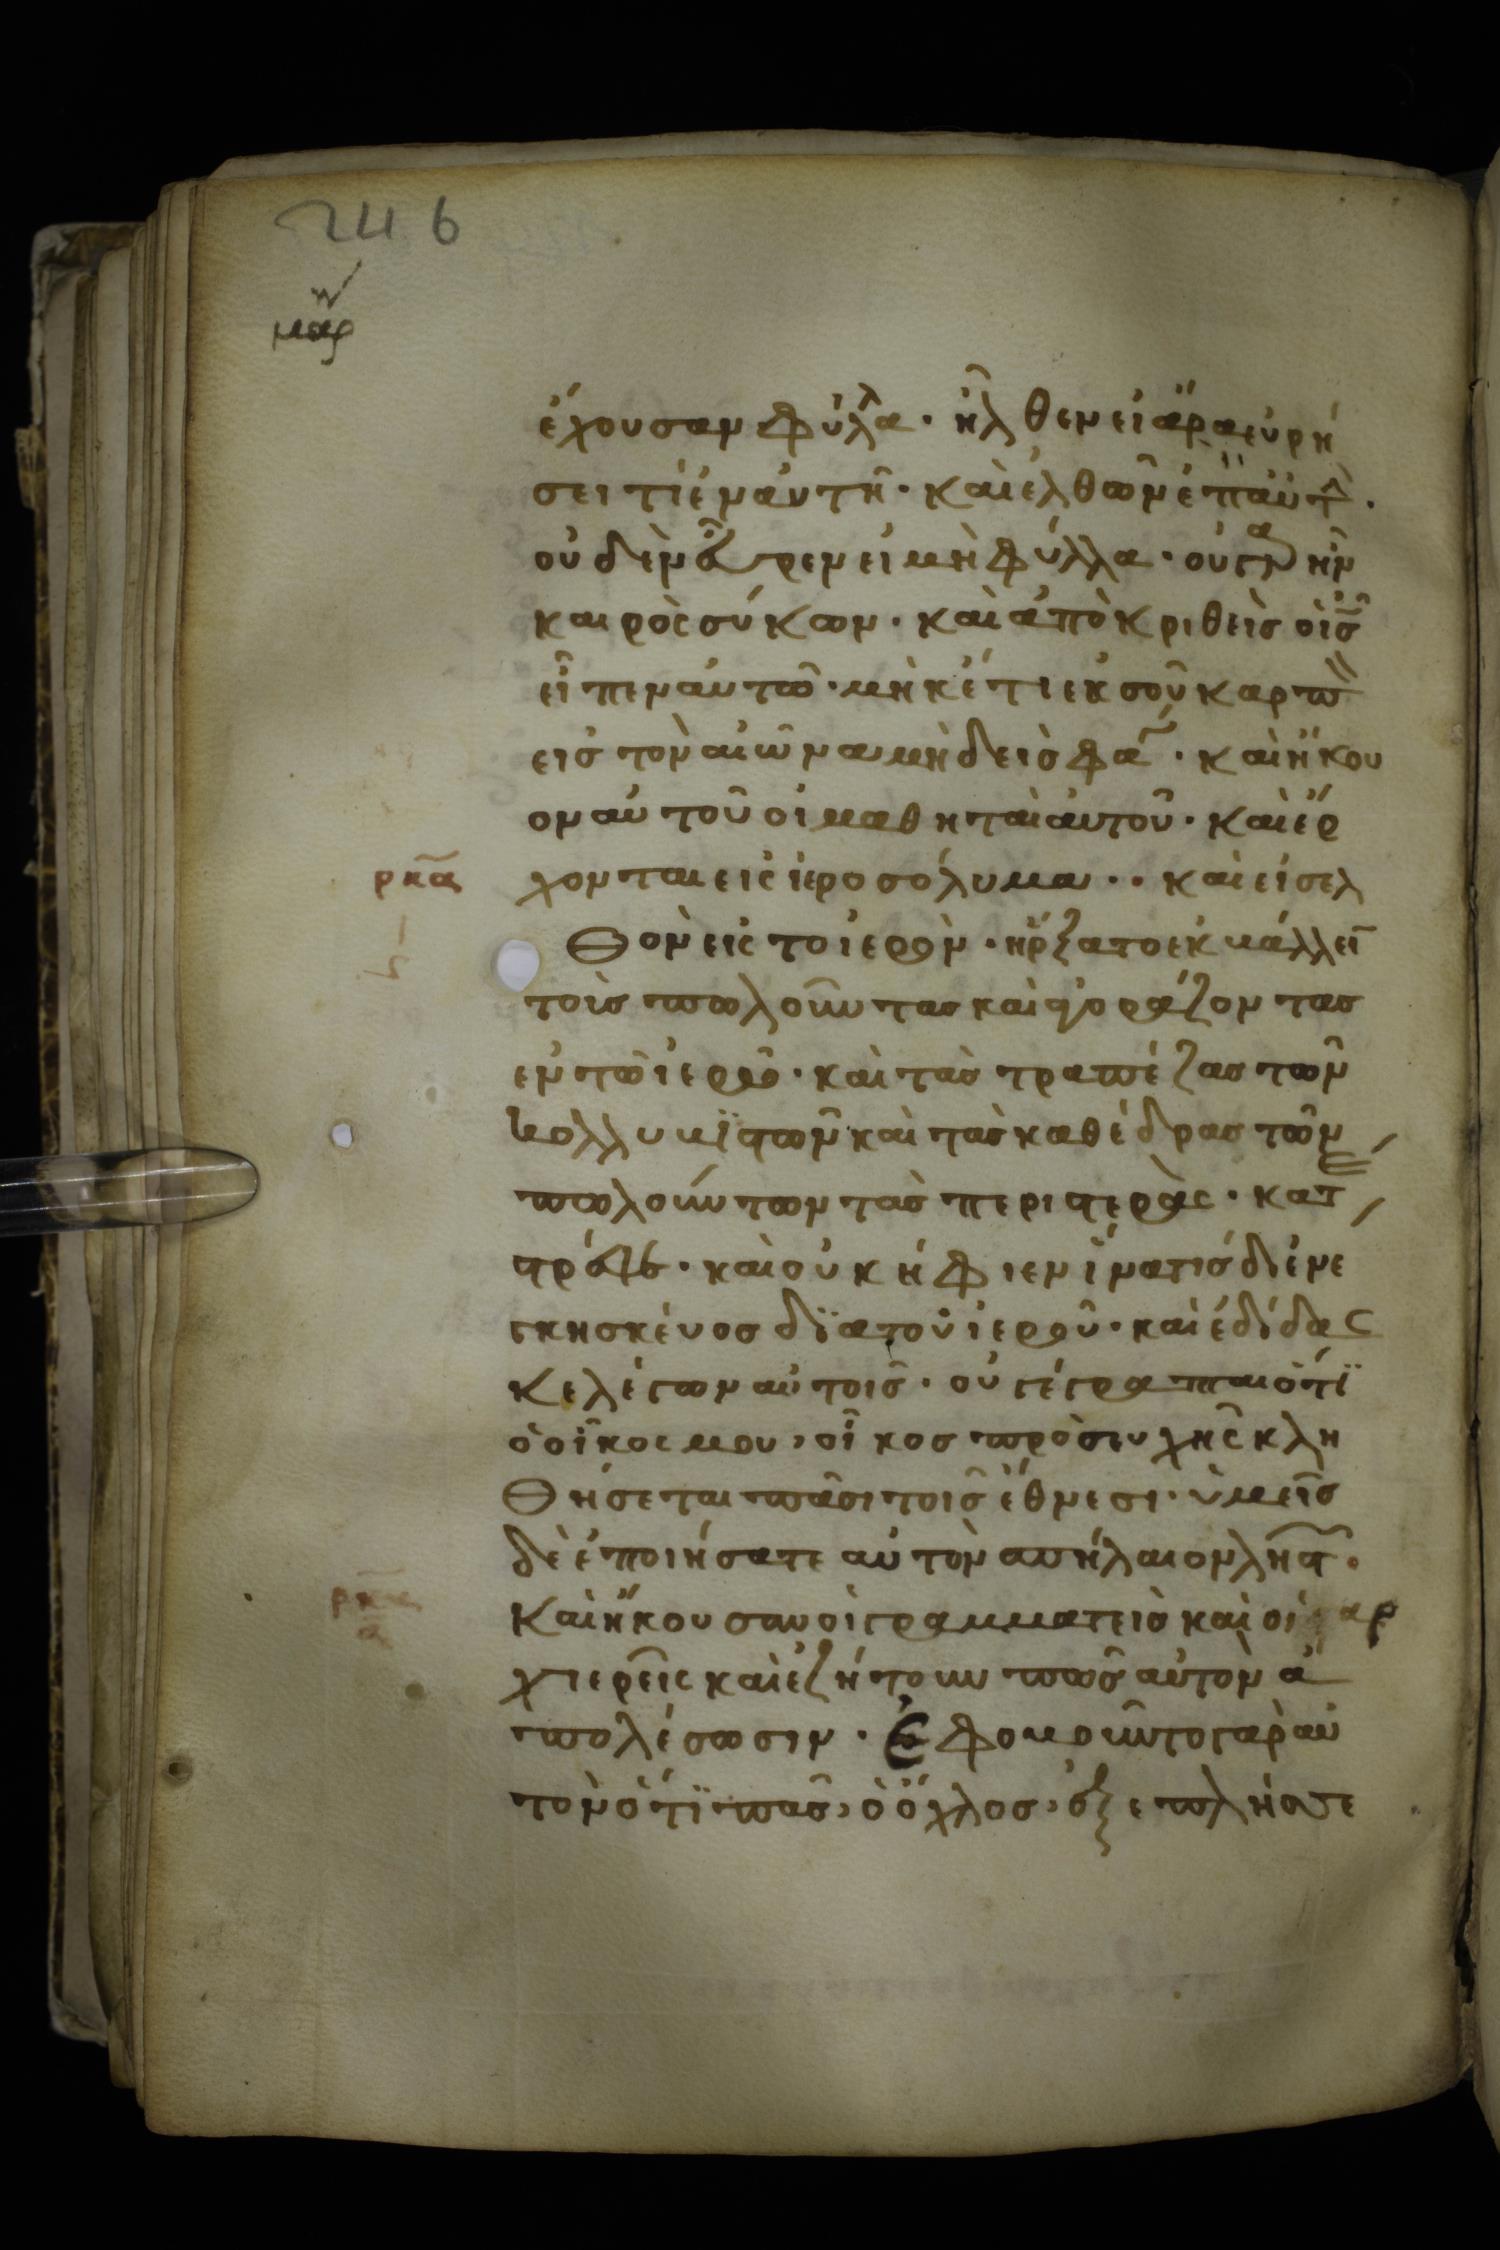 246
μαρ
ἔχουσαν φύλλα· ἦλθεν εἰ ἄρα εὑρή
σει τί ἐν αὐτῆ· καὶ ἐλθὼν ἐπ αὐτ·
οὐδὲν εὗρεν εἰ μὴ φύλλα· οὐ γὰρ ἦν
καιρὸς σύκων· καὶ ἀποκριθεὶς ὁ ις
εἶπεν αὐτῶ· μηκέτι ἐκ σοῦ καρπὸν
εἰς τὸν αἰῶνα μηδεὶς φά· καὶ ἤκου
ον αὐτοῦ οἱ μαθηταὶ αὐτοῦ· καὶ ἔρ
ρκα χονται εἰς ἱεροσόλυμα·· καὶ εἰσελ
θὸν εἰς το ἱερὸν· ἤρξατο ἐκβάλλειν
τοὺς πωλοῦντας καὶ ἀγοράζοντας
ἐν τῶ ἱερῶ· καὶ τὰς τραπέζας τῶν
κολλυβιστῶν καὶ τὰς καθέδρας τῶν
πωλούντων τὰς περιστερὰς· κατέ
στρεψε· καὶ οὐκ ἤφιεν ἵνα τὶς διενέ
γκη σκεύος διὰ τοῦ ἱεροῦ· καὶ ἐδίδας
κε λέγων αὐτοῖς· οὐ γέγραπται ὅτι
ὁ οἶκος μου, οἶκος προσευχῆς κλη
θήσεται πᾶσι τοῖς ἔθνεσι· ὑμεῖς
δὲ ἐποιήσατε αὐτὸν σπήλαιον ληστ·
καὶ ἤκουσαν οἱ γραμματεῖς καὶ οἱ αρ
χιερεῖς καὶ ἐζήτουν πῶς αὐτὸν ἀ
πολέσωσιν· ἐφοβοῦντο γὰρ αὐ
τὸν ὅτι πᾶς, ὁ ὄχλος, ἐξεπλήσσε